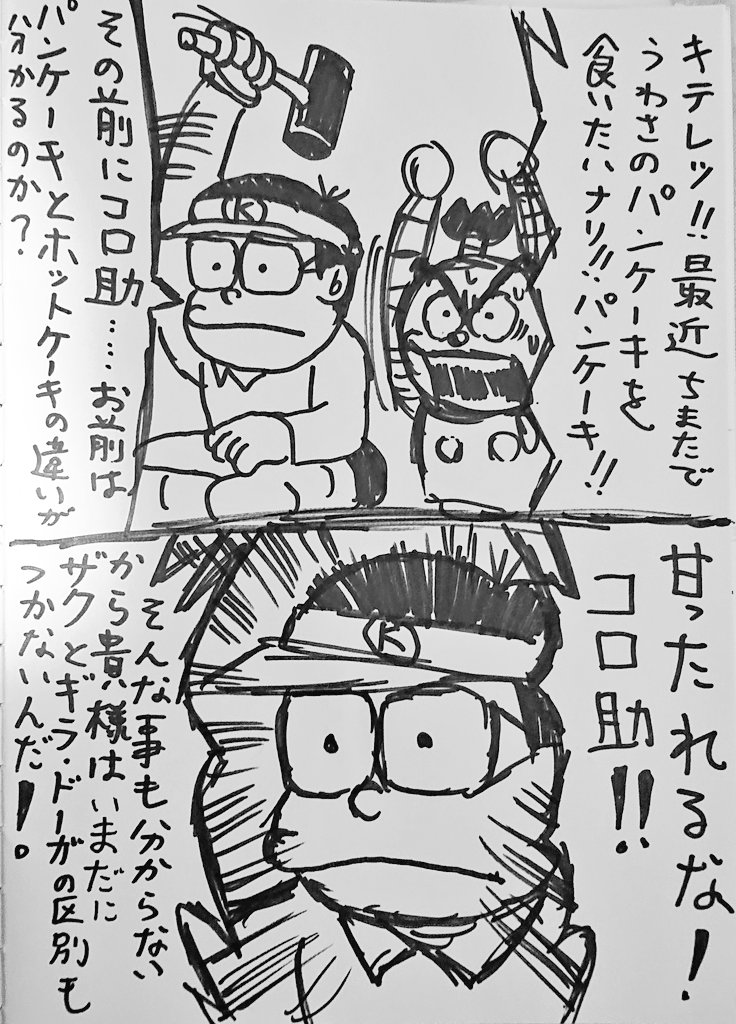 キテレツ!!最近ちまたで
うわさのパンケーキを
食いたいナリ!!パンケーキ!!
その前にコロ助……お前は
パンケーキとホットケーキの違いが
分かるのか?
K
甘ったれるな!
コロ助!!
そんな事も分からない
から貴様はいまだに
ザクとギラ・ドーガの区別も
つかないんだ!。
K